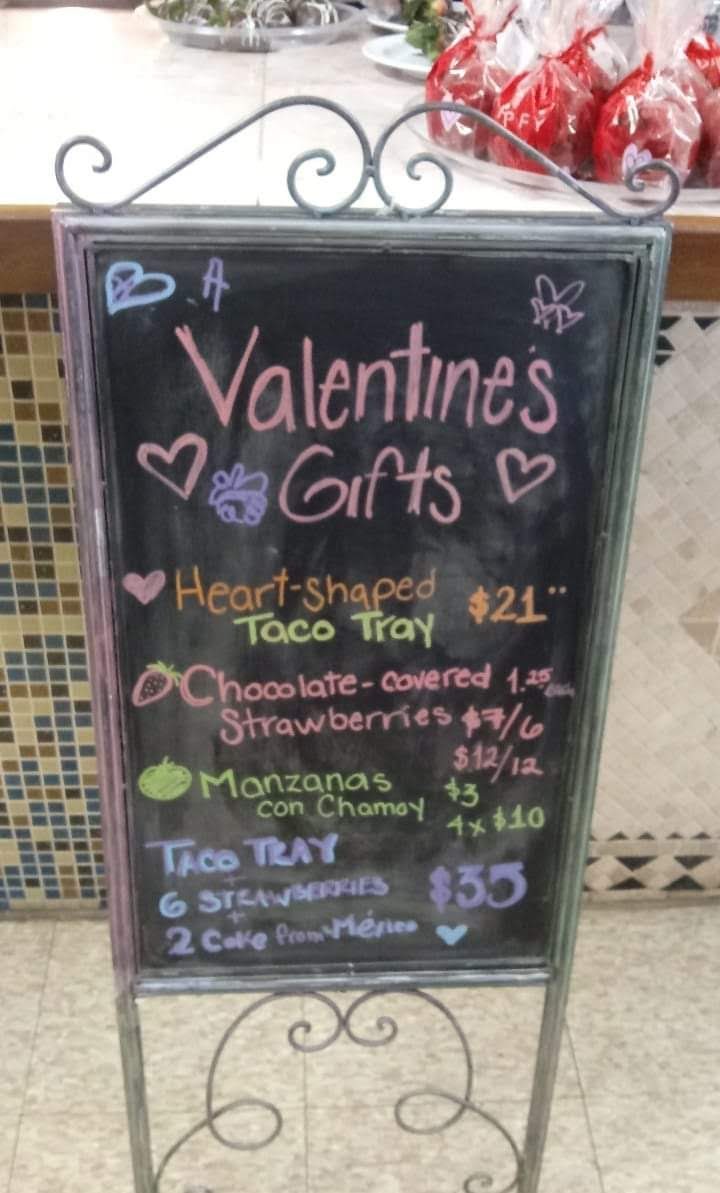 A
Valentine's
Gifts
Heart-shaped $21
Taco Tray
Chocolate-covered 1.25 each
Strawberries $7/6
$12/12
Manzanas $3
con Chamoy 4x $10
TACO TRAY
+
6 STRAWBERRIES $35
+
2 Coke from México